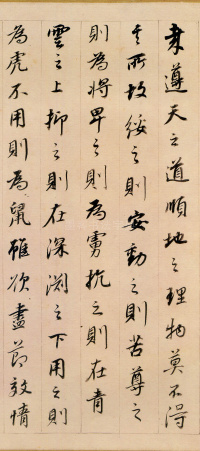 遵天之道順地之理物莫不得
其所故綏之則安動之則苦尊之
則為將卑之則為虜抗之則在青
雲之上抑之則在深淵之下用之則
為虎不用則為鼠雖欲盡節效情